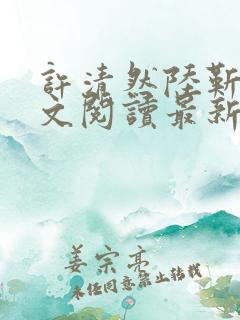 許清然陸靳
文閱讀最新
姜宗亮
未经同意禁止转载